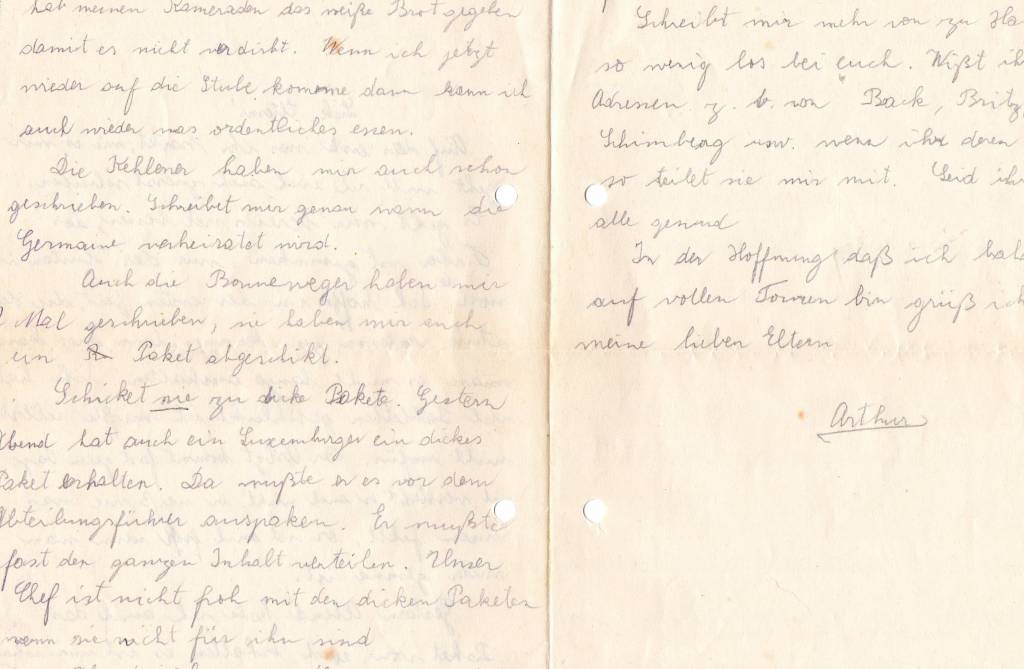 hab meinen Kameraden das weiße Brot gegeben
damit es nicht verdirbt. Wenn ich jetzt
wieder auf die Stube komme dann kann ich
auch wieder was ordentliches essen.
Die Kehlener haben mir auch schon
geschrieben. Schreibet mir genau wann die
Germaine verheiratet wird.
Auch die Bonneweger haben mir
Mal geschrieben, sie haben mir auch
ein Paket abgeschikt.
Schicket nie zu dicke Pakete. Gestern
Abend hat auch ein Luxemburger ein dickes
Paket erhalten. Da mußte er es vor dem
Abteilungsführer auspaken. Er mußte
fast den ganzen Inhalt verteilen. Unser
Chef ist nicht froh mit den dicken Paketen
wenn sie nicht für ihn sind
Schreibt mir mehr von zu Ha
so wenig los bei euch. Wißt ih
Adressen z. b. von Back, Britz,
Schimberg usw. wenn ihr deren
so teilet sie mir mit. Seid ihr
alle gesund
In der Hoffnung daß ich bald
auf vollen Touren bin grüß ich
meine lieben Eltern
Arthur